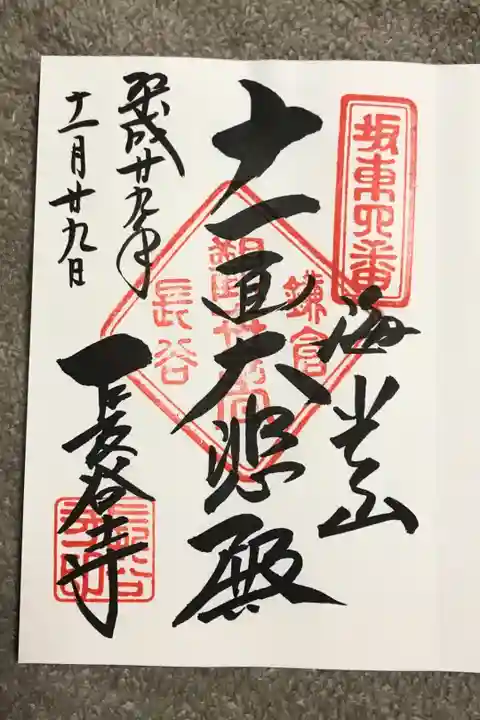 坂東四番
海光山
十一面大悲殿
鎌倉
長谷
平成廿九年
十一月廿九日
長谷寺